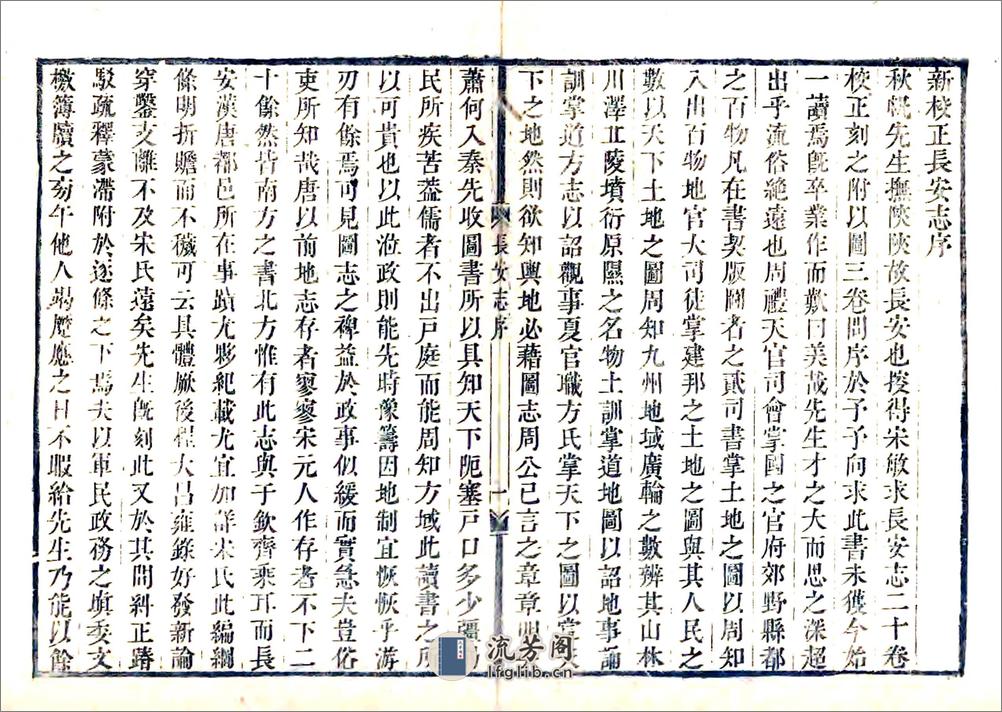 新校正長安志序
秋㠶先生撫陝陝故長安也挍得宋敏求長安志二十卷
校正刻之附以圖三卷問序於予予向求此書未獲今始
一讀焉旣卒業作而歎曰美哉先生才之大而思之深超
出乎流俗絶遠也周禮天官司會掌國之官府郊野縣都
之百物凡在書契版圖者之貳司書掌土地之圖以周知
入出百物地官大司徒掌建邦之土地之圖與其人民之
數以天下土地之圖周知九州地域廣輪之數辨其山林
川澤丘陵墳衍原隰之名物土訓掌道地圖以詔地事誦
訓掌道方志以詔觀事夏官職方氏掌天下之圖以掌天
下之地然則欲知輿地必藉圖志周公已言之章章明
長安志序
一
蕭何入秦先收圖書所以具知天下阨塞戸口多少彊
民所疾苦葢儒者不出戸庭而能周知方域此讀書之所
以可貴也以此涖政則能先時豫籌因地制宜恢恢乎游
刃有餘焉可見圖志之裨益於政事似緩而實急夫豈俗
吏所知哉唐以前地志存者寥寥宋元人作存者不下二
十餘然皆南方之書北方惟有此志與于欽齊乘耳而長
安漢唐都邑所在事蹟尤夥紀載尤宜加詳宋氏此編綱
條明折贍而不穢可云具體厥後程大昌雍錄好發新論
穿鑿支離不及宋氏遠矣先生旣刻此又於其間糾正踳
駮疏釋蒙滯附於逐條之下焉夫以軍民政務之塡委文
檄簿牘之旁午他人竭蹷應之日不暇給先生乃能以餘
流芳阁
lfglib.cn